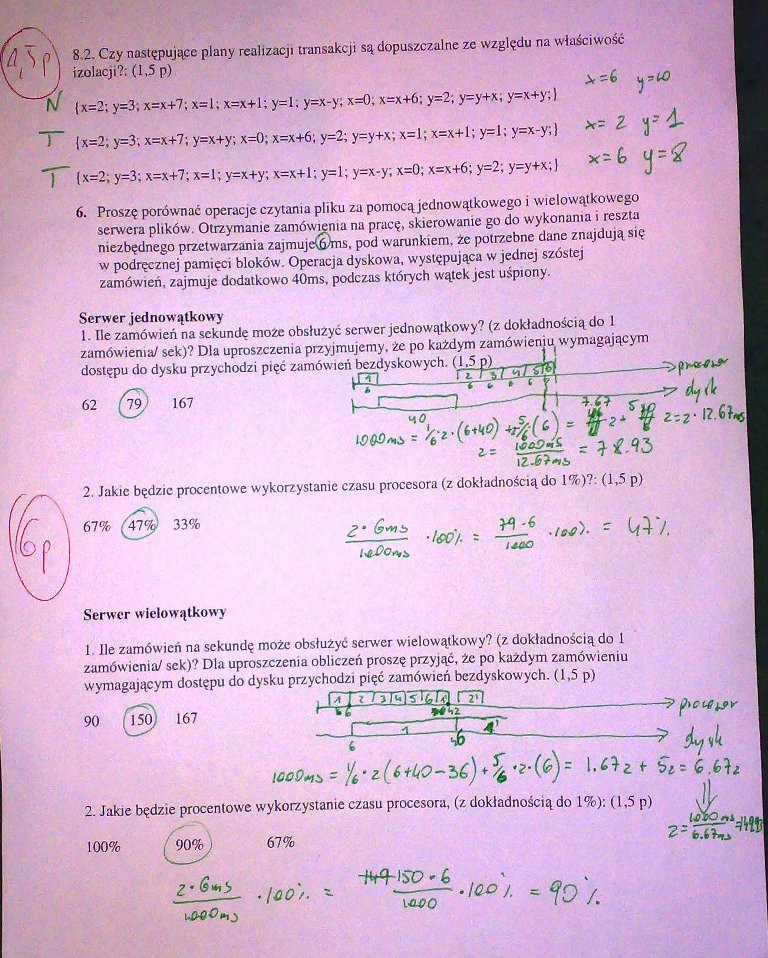 1,5p
8.2. Czy następujące plany realizacji transakcji są dopuszczalne ze względu na właściwość
izolacji?: (1,5 p)
N {x=2; y=3; x=x+7; x=1; x=x+1; y=1; y=x-y; x=0; x=x+6; y=2; y=y+x; y=x+y;} x=6 y=10
T {x=2; y=3; x=x+7; y=x+y; x=0; x=x+6; y=2; y=y+x; x=1; x=x+1; y=1; y=x-y;} x=2 y=1
T {x=2; y=3; x=x+7; x=1; y=x+y; x=x+1; y=1; y=x-y; x=0; x=x+6; y=2; y=y+x;} x=6 y=8
6. Proszę porównać operacje czytania pliku za pomocą jednowątkowego i wielowątkowego
serwera plików. Otrzymanie zamówienia na pracę, skierowanie go do wykonania i reszta
niezbędnego przetwarzania zajmuje 6 ms, pod warunkiem, że potrzebne dane znajdują się
w podręcznej pamięci bloków. Operacja dyskowa, występująca w jednej szóstej
zamówień, zajmuje dodatkowo 40ms, podczas których wątek jest uśpiony.
Serwer jednowątkowy
1. Ile zamówień na sekundę może obsłużyć serwer jednowątkowy? (z dokładnością do 1
zamówienia/ sek)? Dla uproszczenia przyjmujemy, że po każdym zamówieniu wymagającym
dostępu do dysku przychodzi pięć zamówień bezdyskowych. (1,5 p)
1 2 3 4 5 6 procesor
6 6 6 6 6
dysk
62 79 167
40
7.67
1000ms = 1/6·z·(6+40) + 5/6(6) = z + 5 z = z·12.67ms
z = 1000ms / 12.67ms = 78.93
2. Jakie będzie procentowe wykorzystanie czasu procesora (z dokładnością do 1%)?: (1,5 p)
6p
67% 47% 33%
z·6ms / 1000ms · 100% = 79·6 / 1000 · 100% = 47%
Serwer wielowątkowy
1. Ile zamówień na sekundę może obsłużyć serwer wielowątkowy? (z dokładnością do 1
zamówienia/ sek)? Dla uproszczenia obliczeń proszę przyjąć, że po każdym zamówieniu
wymagającym dostępu do dysku przychodzi pięć zamówień bezdyskowych. (1,5 p)
1 2 3 4 5 6 1' 2' procesor
6 6 42
90 150 167
1 1' dysk
6 46
1000ms = 1/6·z(6+40-36) + 5/6·z·(6) = 1.67z + 5z = 6.67z
2. Jakie będzie procentowe wykorzystanie czasu procesora, (z dokładnością do 1%): (1,5 p)
z = 1000ms / 6.67ms
100% 90% 67%
z·6ms / 1000ms · 100% = 149 150·6 / 1000 · 100% = 90%